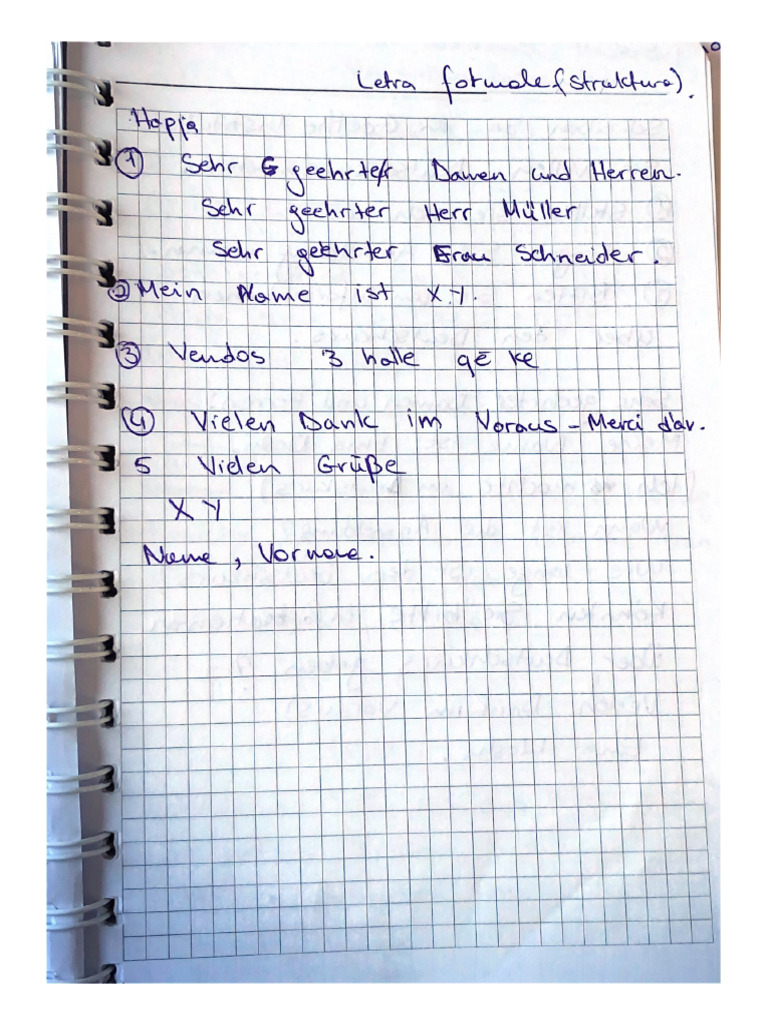 Letra formale (struktura).
Hapja
① Sehr geehrter Damen und Herren.
Sehr geehrter Herr Müller
Sehr geehrter Frau Schneider.
② Mein Name ist X.Y.
③ Vendos 3 halle që ke
④ Vielen Dank im Voraus - Merci d'av.
5 Vielen Grüße
X Y
Name, Vorname.